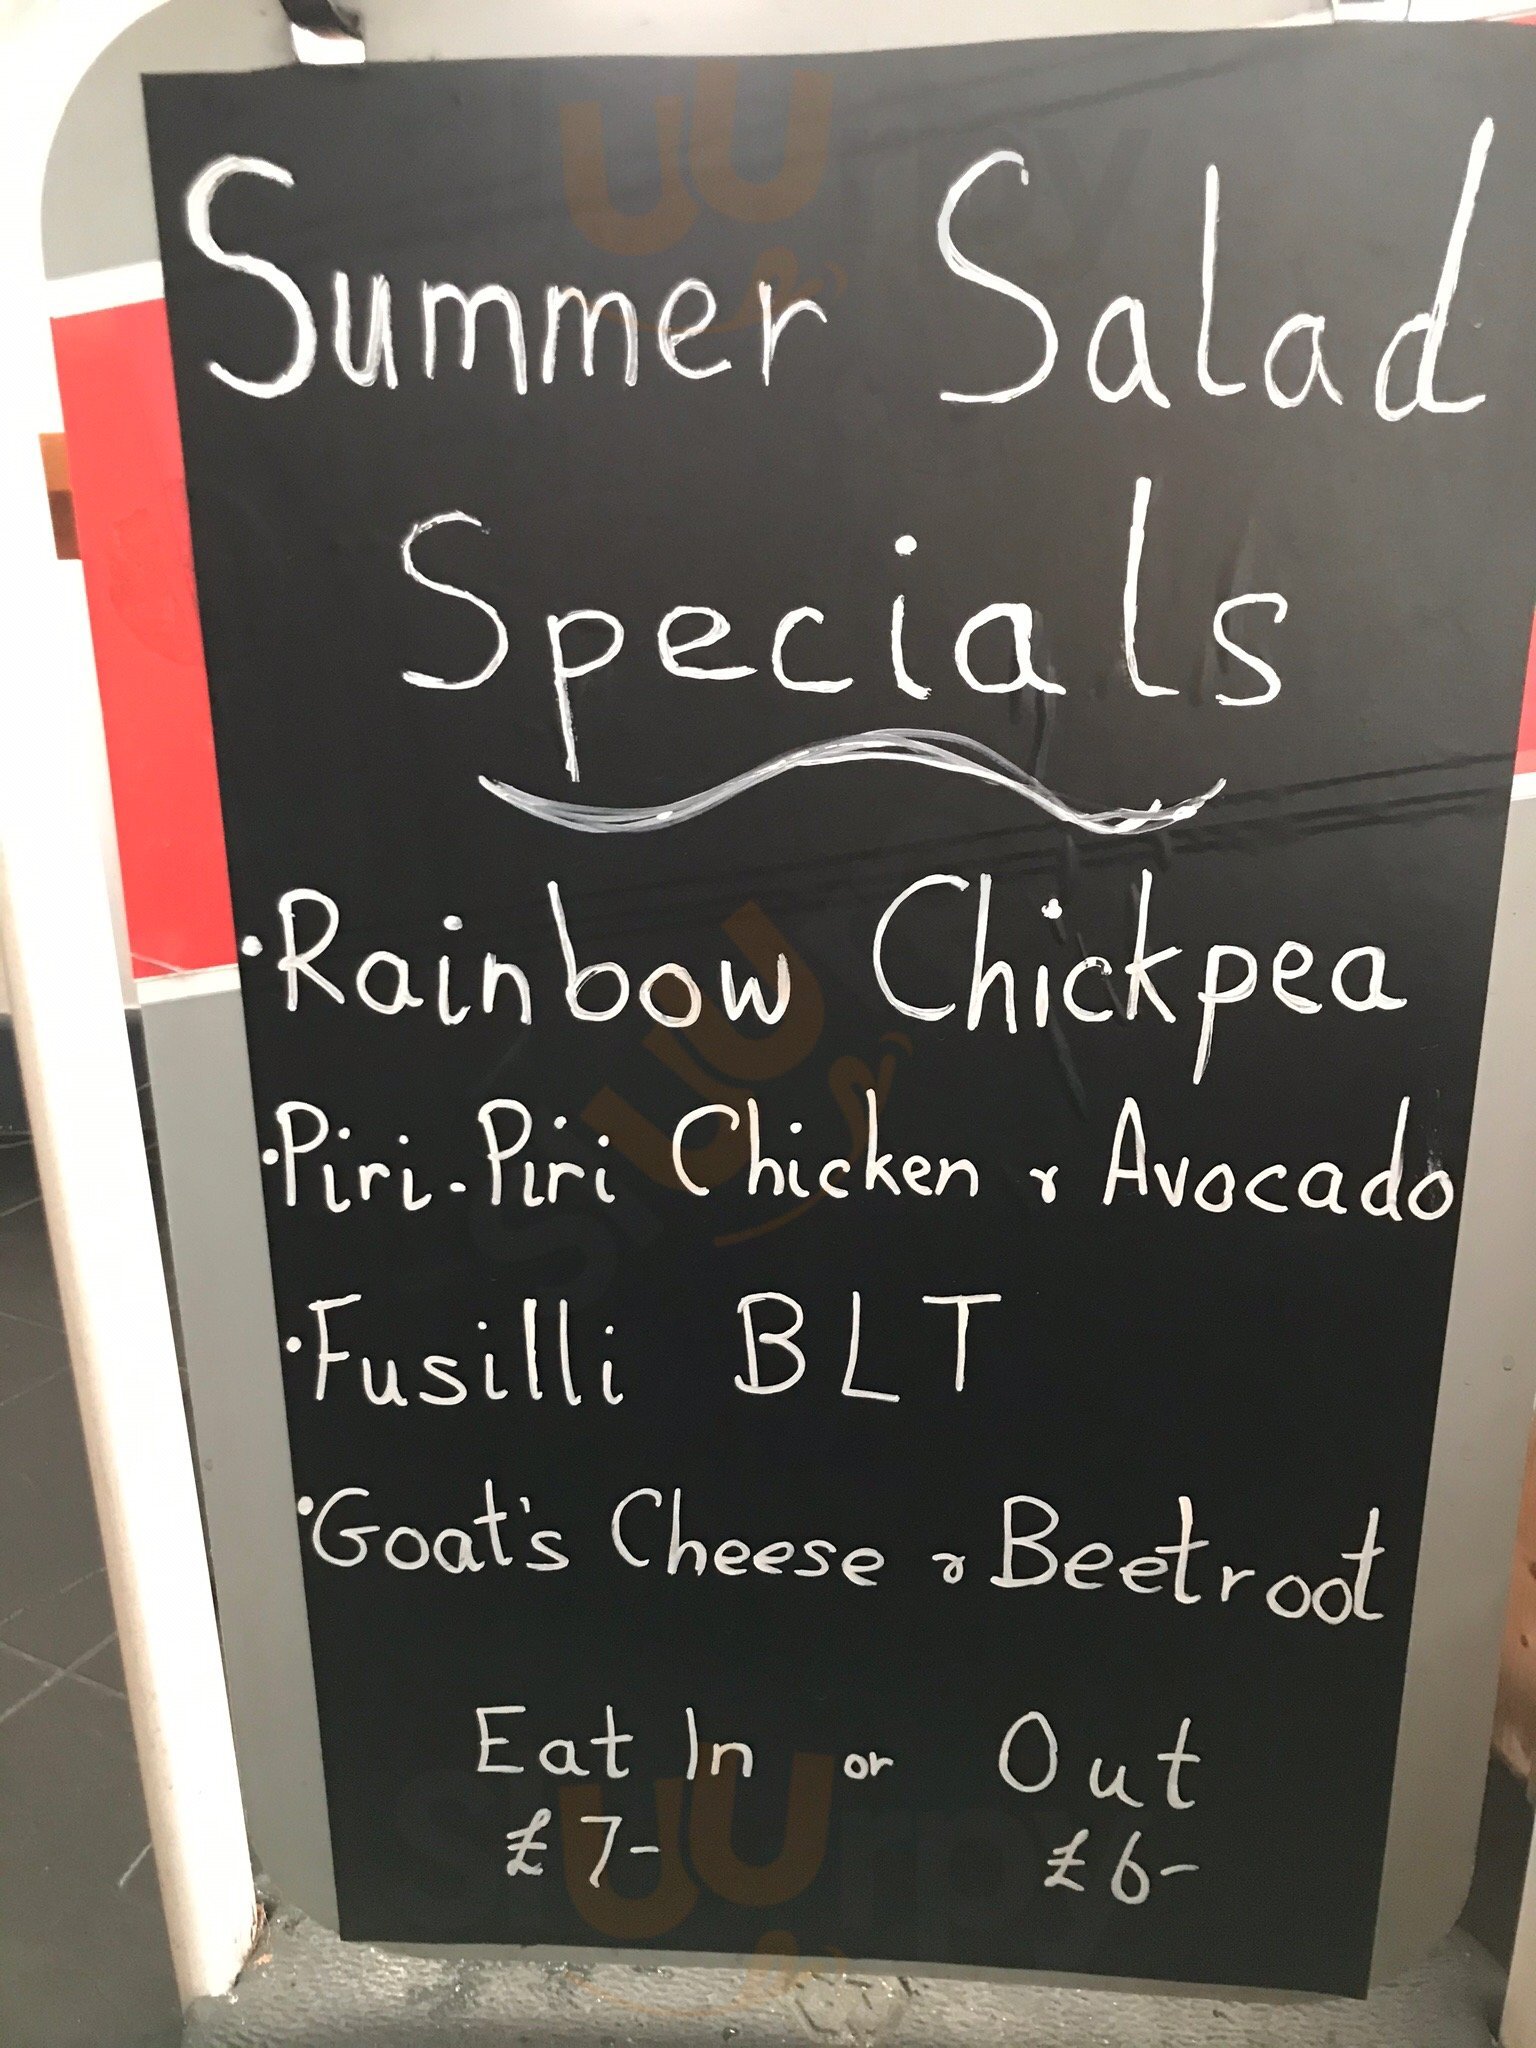 Summer Salad
Specials
• Rainbow Chickpea
• Piri-Piri Chicken & Avocado
• Fusilli BLT
• Goat's Cheese & Beetroot
Eat In or Out
£7- £6-